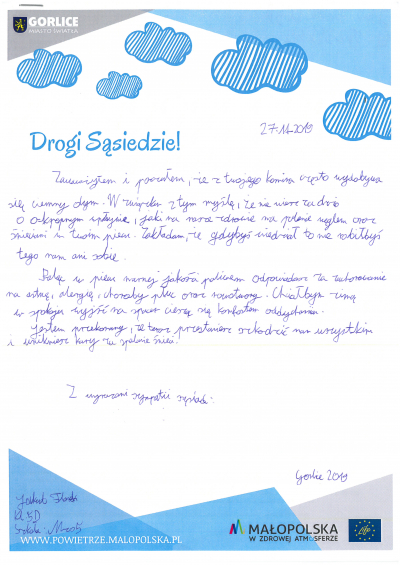 GORLICE
MIASTO ŚWIATŁA
27-11-2019
Drogi Sąsiedzie!
Zauważyłem i poczułem, że z twojego komina często wydobywa
się ciemny dym. W związku z tym myślę, że nie wiesz za dużo
o okropnym wpływie, jaki na nasze zdrowie ma palenie węglem oraz
śmieciami w twoim piecu. Zakładam, że gdybyś wiedział to nie robiłbyś
tego nam ani sobie.
Paląc w piecu marnej jakości paliwem odpowiadasz za zachorowanie
na astmę, alergię, choroby płuc oraz nowotwory. Chciałbym zimą
w spokoju wyjść na spacer ciesząc się komfortem oddychania.
Jestem przekonany, że teraz przestaniesz szkodzić nam wszystkim
i unikniesz kary za palenie śmieci.
Z wyrazami sympatii sąsiad:
Gorlice 2019
Jakub
kl. 5D
Szkoła Nr 5
WWW.POWIETRZE.MALOPOLSKA.PL
MAŁOPOLSKA
W ZDROWEJ ATMOSFERZE
life